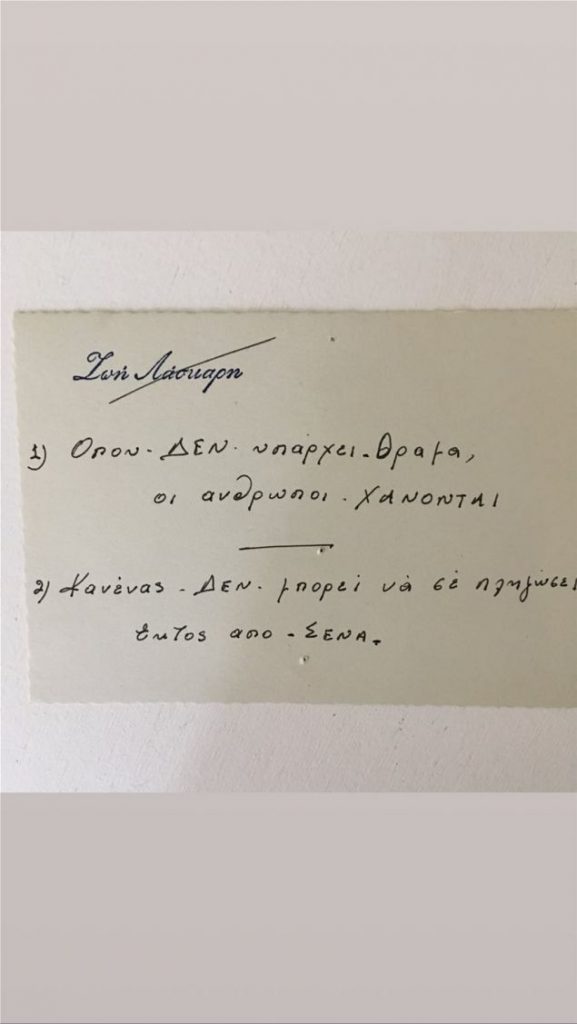 Ζωή Λάσκαρη
1) Οπου - ΔΕΝ - υπάρχει - Θραμα,
οι ανθρωποι - ΧΑΝΟΝΤΑΙ
2) Κανένας - ΔΕΝ - μπορεί νά σέ πληγώσει
Εκτος απο - ΣΕΝΑ.